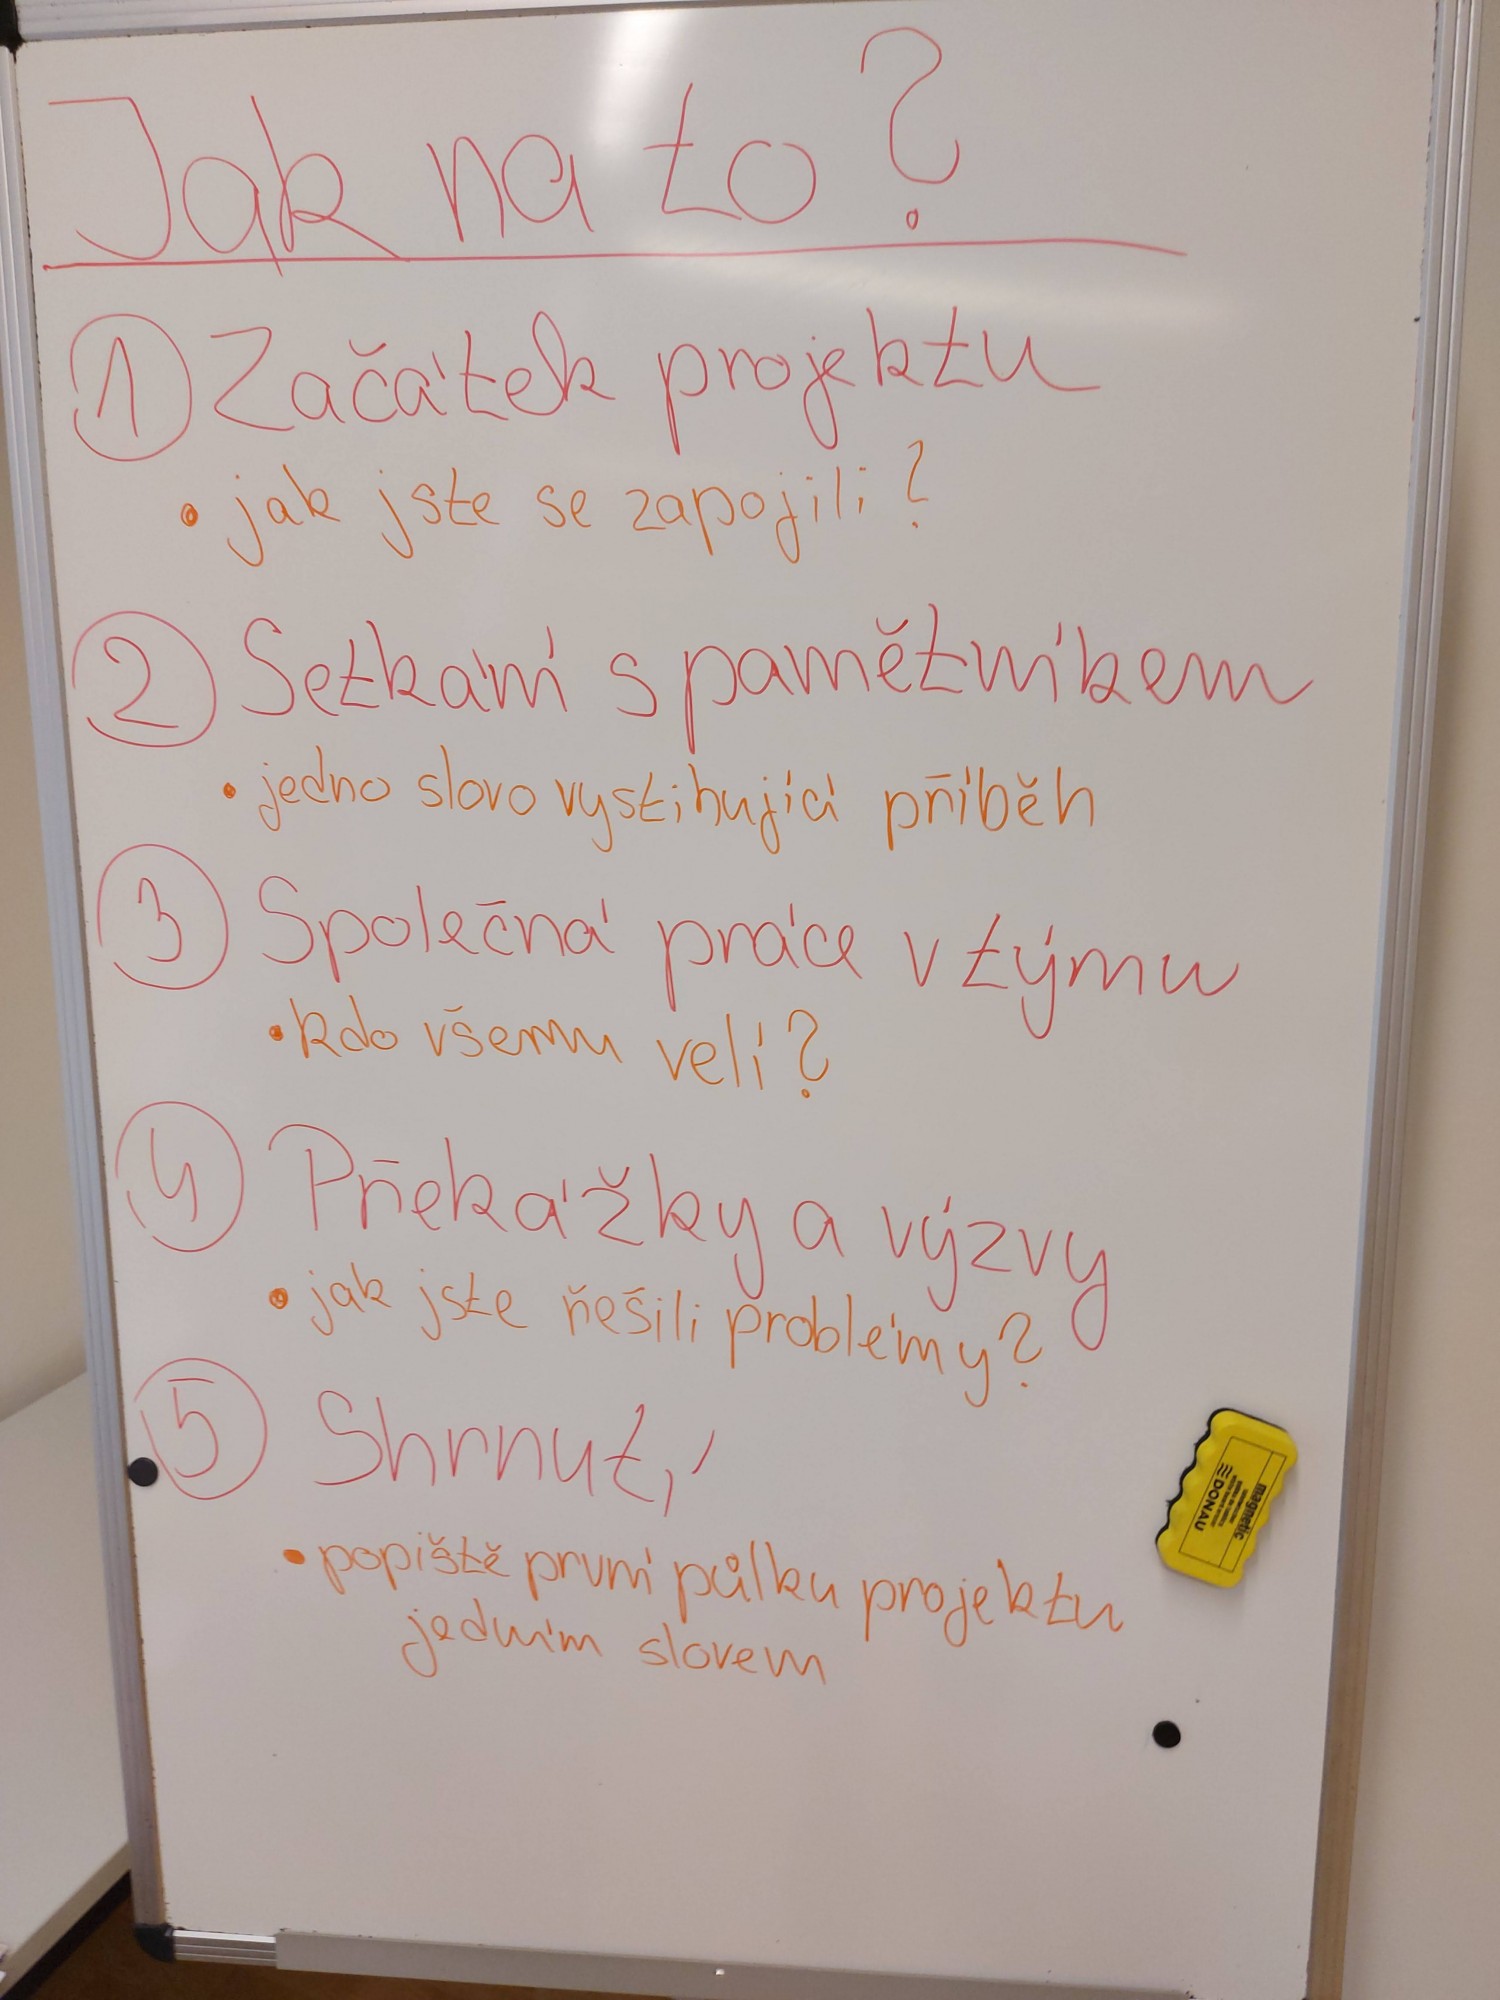 Jak na to?
1 Začátek projektu
• jak jste se zapojili?
2 Setkání s pamětníkem
• jedno slovo vystihující příběh
3 Společná práce v týmu
• kdo všemu velí?
4 Překážky a výzvy
• jak jste řešili problémy?
5 Shrnutí
• popiště první půlku projektu
jedním slovem
magnetic
DONAU